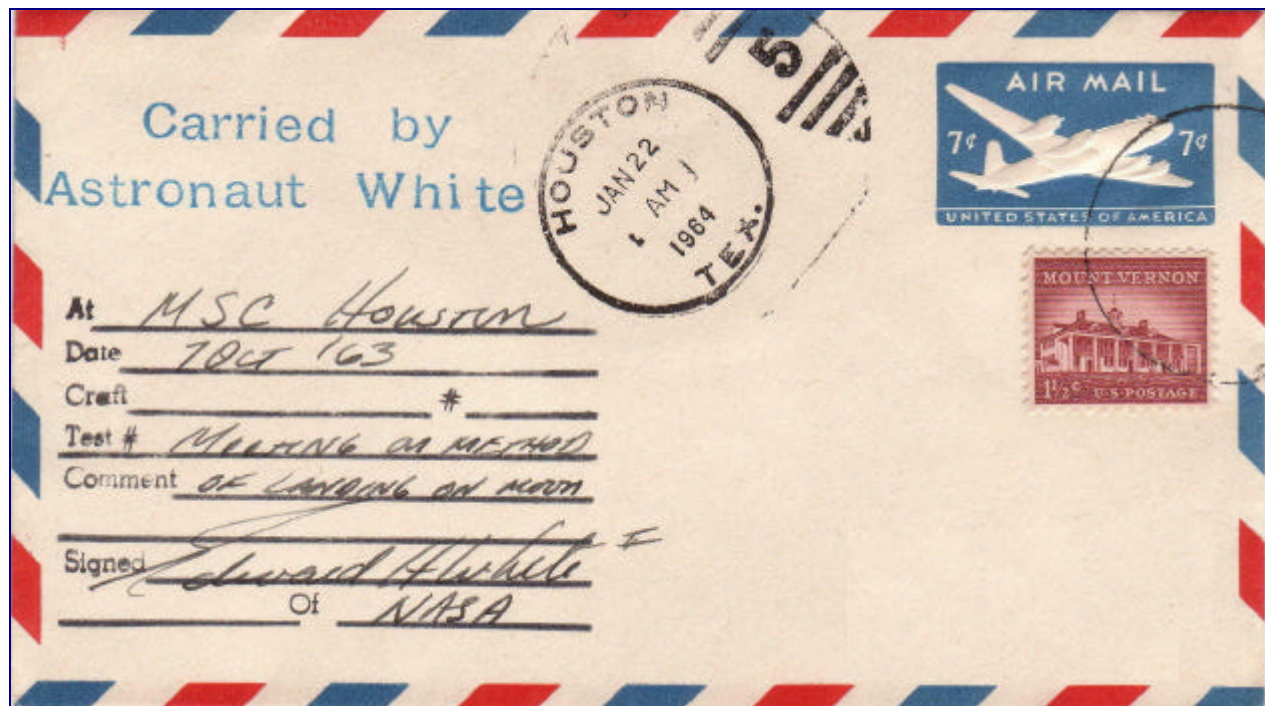 Carried by
Astronaut White
5
HOUSTON
JAN 22
1 AM
1964
TEX.
AIR MAIL
7¢ 7¢
UNITED STATES OF AMERICA
MOUNT VERNON
1½¢ U·S·POSTAGE
At MSC Houston
Date 7 Oct '63
Craft #
Test # MEETING ON METHOD
Comment OF LANDING ON MOON
Signed Edward H White II
Of NASA